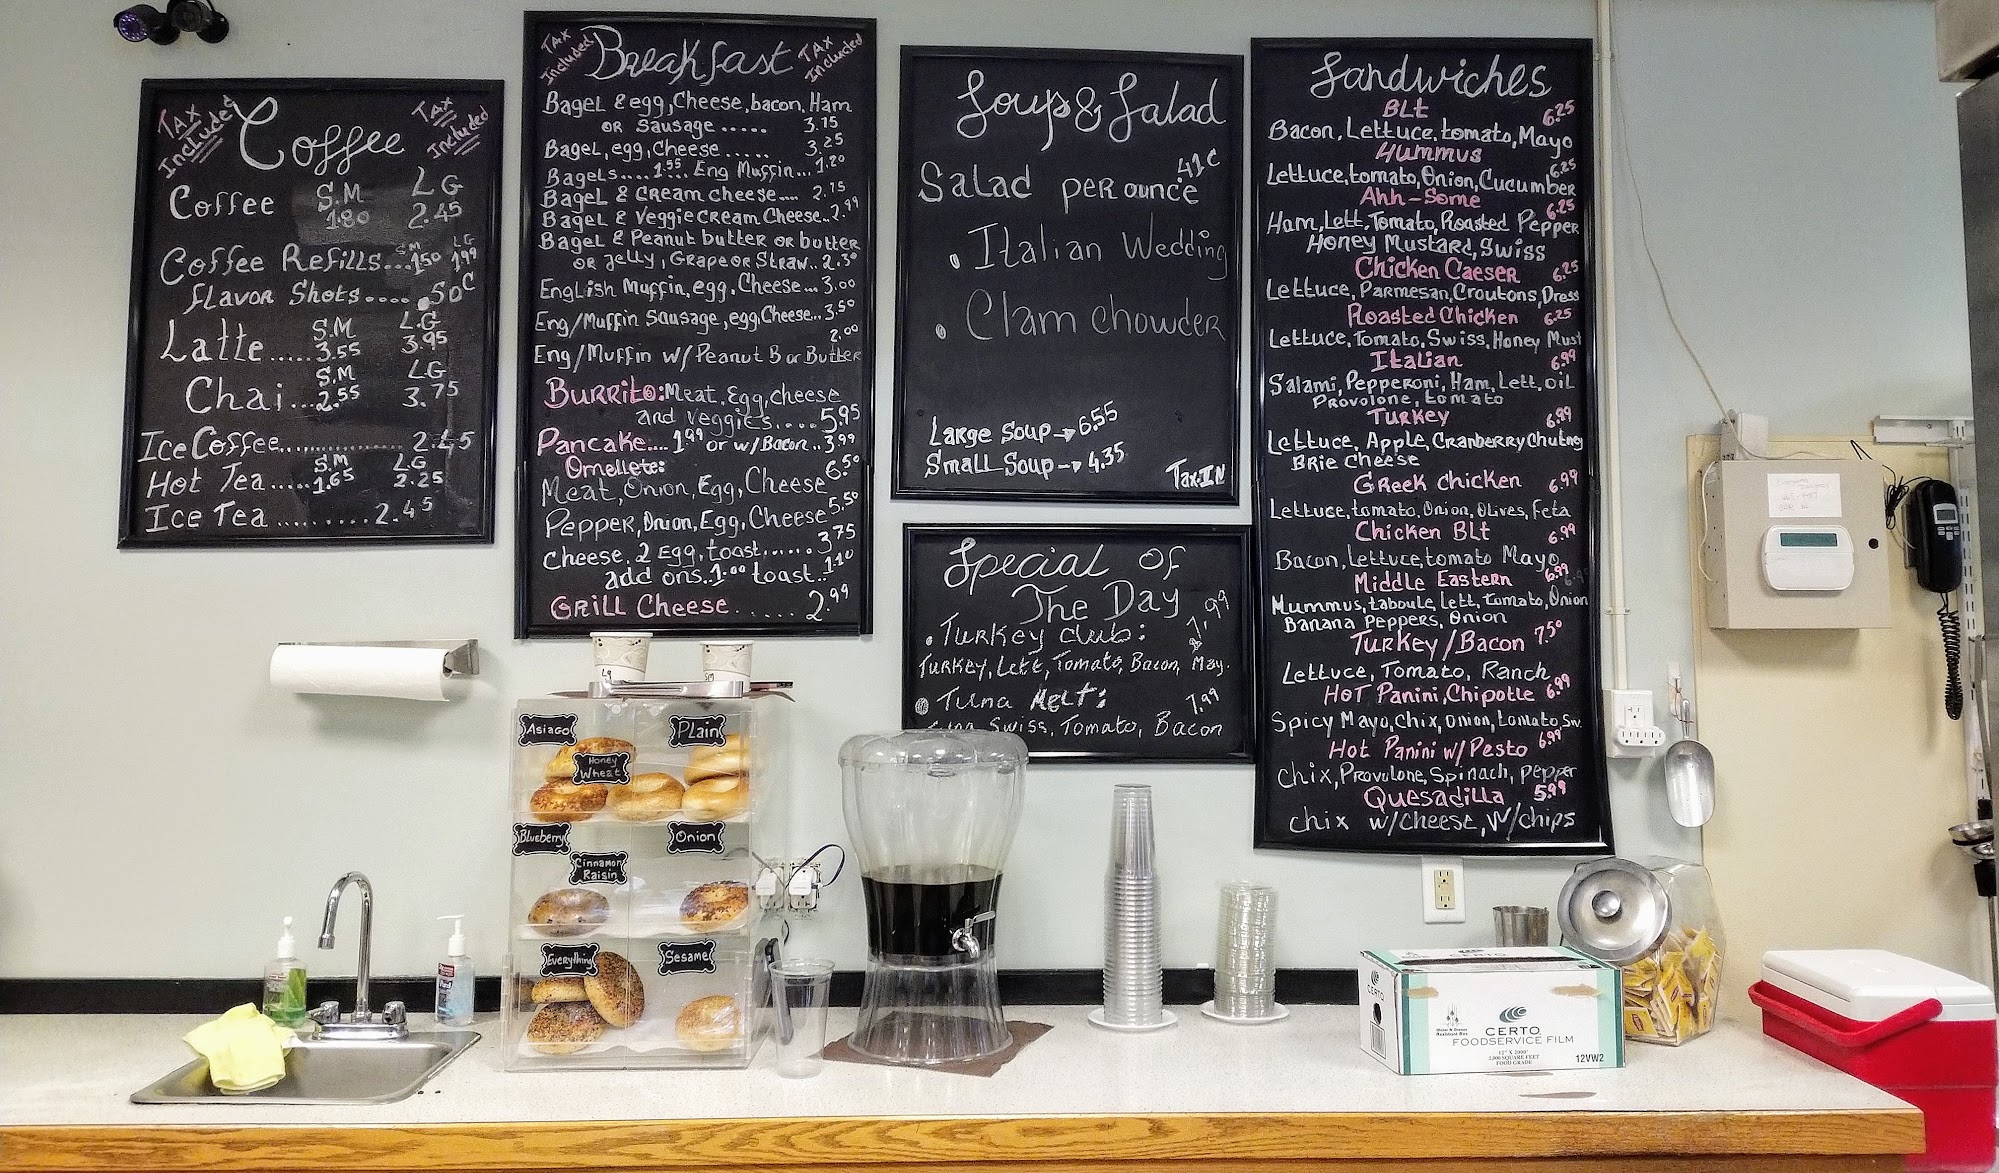 TAX Included
TAX Included
Coffee
Coffee S.M 1.80 LG 2.45
Coffee Refills... SM 1.50 LG 1.99
flavor Shots.... .50¢
Latte..... S.M 3.55 L.G 3.95
Chai... S.M 2.55 LG 3.75
Ice Coffee.............. 2.45
Hot Tea..... S.M 1.65 LG 2.25
Ice Tea ......... 2.45
TAX Included
Breakfast
TAX Included
Bagel & egg, Cheese, bacon, Ham
or Sausage ..... 3.75
Bagel, egg, Cheese ..... 3.25
Bagels.... 1.55 ... Eng Muffin... 1.20
Bagel & Cream cheese.... 2.75
Bagel & Veggie Cream Cheese.. 2.99
Bagel & Peanut butter or butter
or jelly, Grape or Straw.. 2.30
English Muffin, egg, Cheese... 3.00
Eng/Muffin Sausage, egg, Cheese.. 3.50
2.00
Eng/Muffin w/ Peanut B or Butter
Burrito: Meat, Egg, cheese
and veggies.... 5.95
Pancake.... 1.99 or w/ Bacon.. 3.99
Omellete:
Meat, Onion, Egg, Cheese 6.50
Pepper, Onion, Egg, Cheese 5.50
Cheese, 2 Egg, toast...... 3.75
add ons.. 1.00 toast.. 1.10
Grill Cheese ..... 2.99
Soup & Salad
Salad per ounce 41¢
• Italian Wedding
• Clam chowder
Large Soup → 6.55
Small Soup → 4.35
Tax-IN
Special Of
The Day
• Turkey club: 7.99
Turkey, Lett, Tomato, Bacon, May.
• Tuna Melt: 7.99
Swiss, Tomato, Bacon
Sandwiches
BLt 6.25
Bacon, Lettuce, tomato, Mayo
Hummus 6.25
Lettuce, tomato, Onion, Cucumber
Ahh-Some 6.25
Ham, Lett, Tomato, Roasted Pepper
Honey Mustard, Swiss
Chicken Caeser 6.25
Lettuce, Parmesan, Croutons, Dress
Roasted Chicken 6.25
Lettuce, Tomato, Swiss, Honey Must
Italian 6.99
Salami, Pepperoni, Ham, Lett, oil
Provolone, tomato
Turkey 6.99
Lettuce, Apple, Cranberry Chutney
Brie Cheese
Greek Chicken 6.99
Lettuce, tomato, Onion, Olives, Feta
Chicken BLt 6.99
Bacon, Lettuce, tomato Mayo
Middle Eastern 6.99
Mummus, taboule, lett, tomato, Onion
Banana Peppers, Onion
Turkey/Bacon 7.50
Lettuce, Tomato, Ranch
Hot Panini, Chipotle 6.99
Spicy Mayo, Chix, Onion, tomato, Sw.
Hot Panini w/ Pesto 6.99
Chix, Provolone, Spinach, pepper
Quesadilla 5.99
Chix w/ Cheese, W/ Chips
Lg
SM
Asiago
Plain
Honey
Wheat
Blueberry
Onion
Cinnamon
Raisin
Everything
Sesame
CERTO
CERTO
CERTO
FOODSERVICE FILM
12" X 2000'
2,000 SQUARE FEET
FOOD GRADE
12VW2